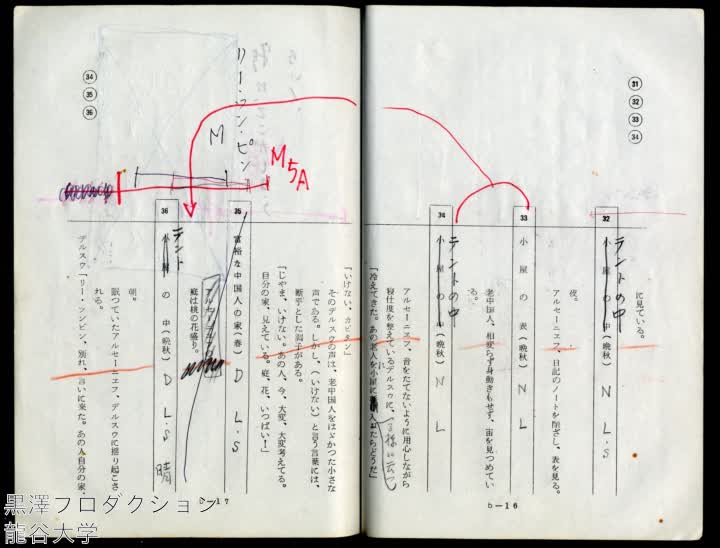 ㉛
㉜
㉝
㉞
に見ている。
32 小屋の中(晩秋) N L・S
テントの中
夜。
アルセーニエフ、日記のノートを閉ざし、表を見る。
33 小屋の表(晩秋) N L
老中国人、相変らず身動きもせず、宙を見つめている。
34 小屋の中(晩秋) N L
テントの中
アルセーニエフ、音をたてないように用心しながら
寝仕度を整えているデルスウに、
「冷えてきた。あの老人を小屋に入れたらどうだ」
b—16
㉞
㉟
㊱
リー・ツン・ピン
M
M5A
「いけない、カピタン」
そのデルスウの声は、老中国人をはゞかった小さな
声である。しかし、(いけない)と言う言葉には、
断乎とした調子がある。
「じゃま、いけない。あの人、今、大変、大変考えてる。
自分の家、見えている。庭、花、いっぱい!」
35 富裕な中国人の家(春) D L・S
アルセーニエフ
庭は桃の花盛り。
36 小屋の中(晩秋) D L・S 晴
テント
朝。
眠っていたアルセーニエフ、デルスウに揺り起こさ
れる。
デルスウ「リー・ツンピン、別れ、言いに来た。あの人自分の家、
b—17
黒澤プロダクション
龍谷大学